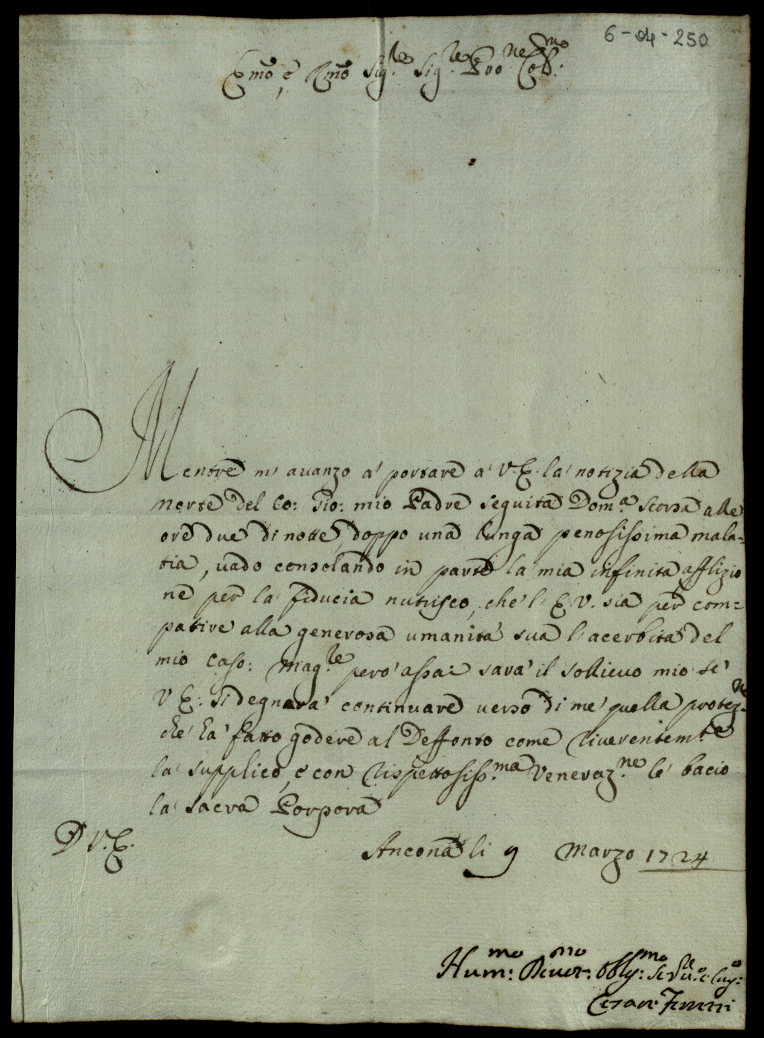 6-04-250
Emo, e Rmo Sigle Sigle Proне Colmo
Mentre mi auanzo a' portare a' V.E. la' notizia della
morte del Co: Gio: mio Padre seguita Doma scorsa alle
ore due di notte, doppo una lunga penosissima mala=
tia, uado consolando in parte la mia infinita afflizio
ne per la fiducia nutrisco, che' l' E.V. sia per com=
patire alla generosa umanità sua l'acerbità del
mio caso: Magle però assai sarà il sollieuo mio se'
V.E. si degnarà continuare uerso di me' quella protezne
che' ha' fatto godere al Deffonto come riuerentemte
la supplico, e con rispettosissma Venerazne le' bacio
la' sacra Porpora
D V.E.
Ancona li 9 Marzo 1724
Hummo: Deuotmo: Obligmo:
Cesare